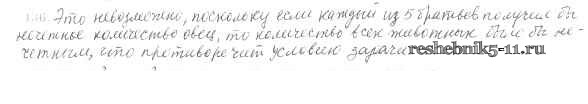 1.36. Это невозможно, поскольку если каждый из 5 братьев получил бы
нечетное количество овец, то количество всех животных было бы не-
четным, что противоречит условию задачи
reshebnik5-11.ru